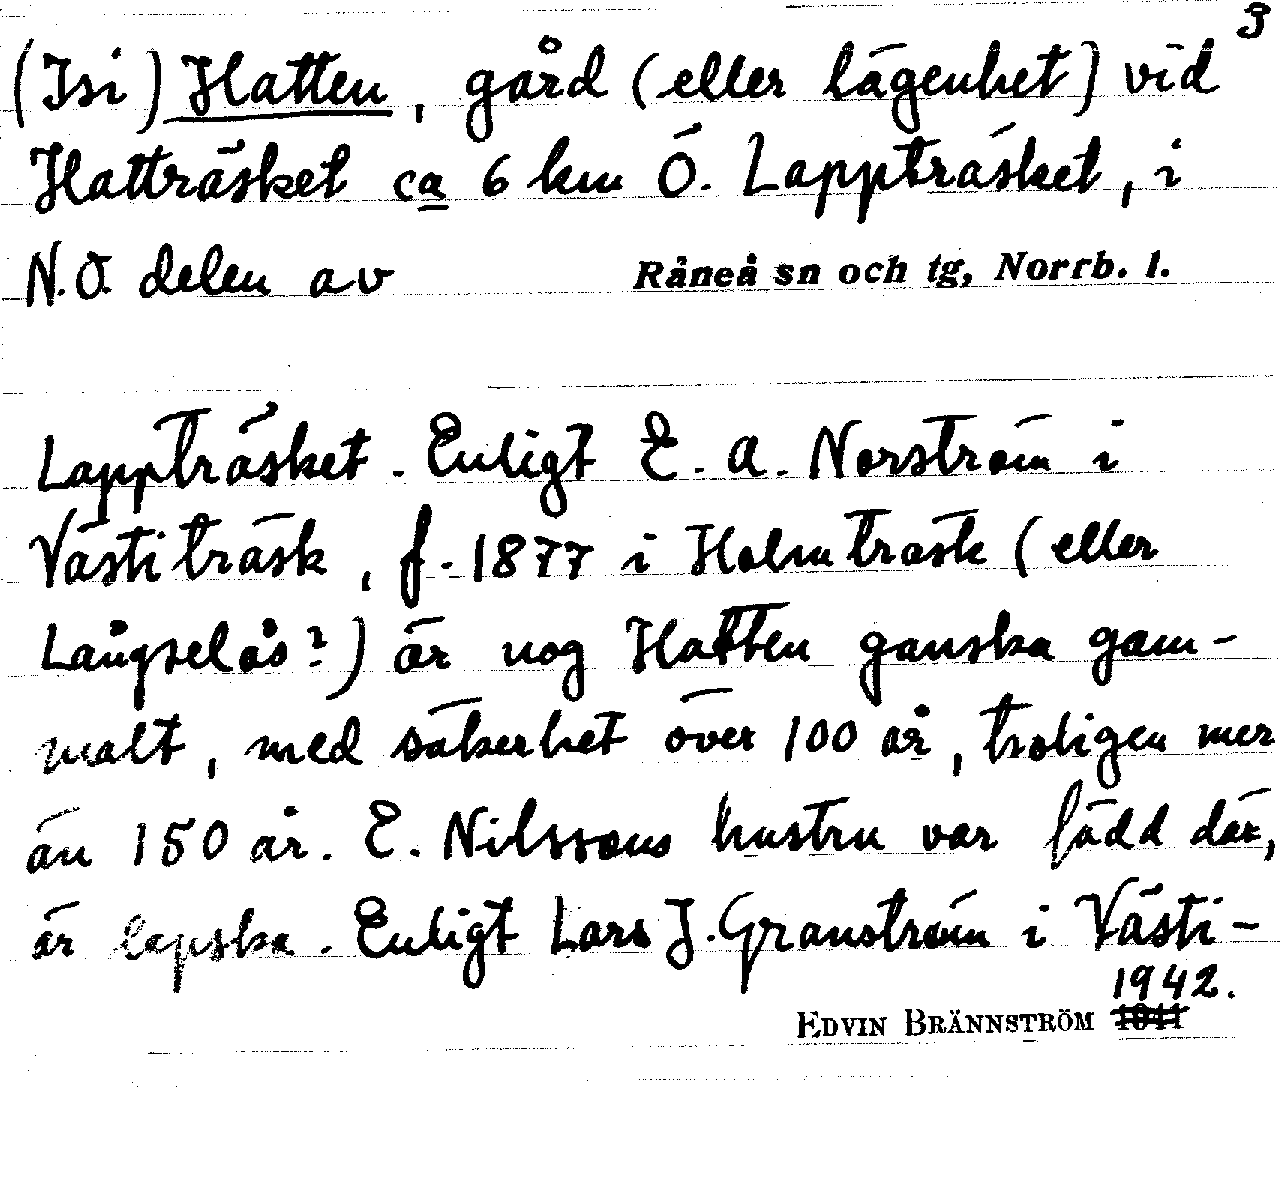 3
(Isi) Hatten, gård (eller lägenhet) vid
Hatträsket ca 6 km Ö. Lappträsket, i
N.Ö. delen av Råneå sn och tg, Norrb. l.
Lappträsket. Enligt E. A. Norström i
Västiträsk, f. 1877 i Holmträsk (eller
Långselås?) är nog Hatten ganska gam-
malt, med säkerhet över 100 år, troligen mer
än 150 år. E. Nilssons hustru var född där,
är lapska. Enligt Lars J. Granström i Västi-
1942.
EDVIN BRÄNNSTRÖM 1941